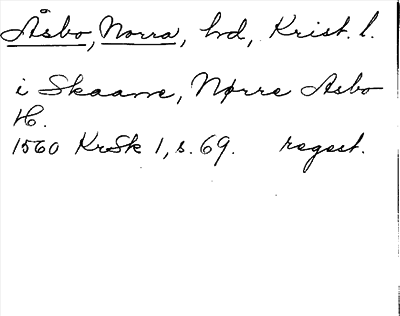 Åsbo, Norra, hd, Krist. l.
i Skaane, Nørre Asbo
H.
1560 KrSk 1, s. 69. regest.